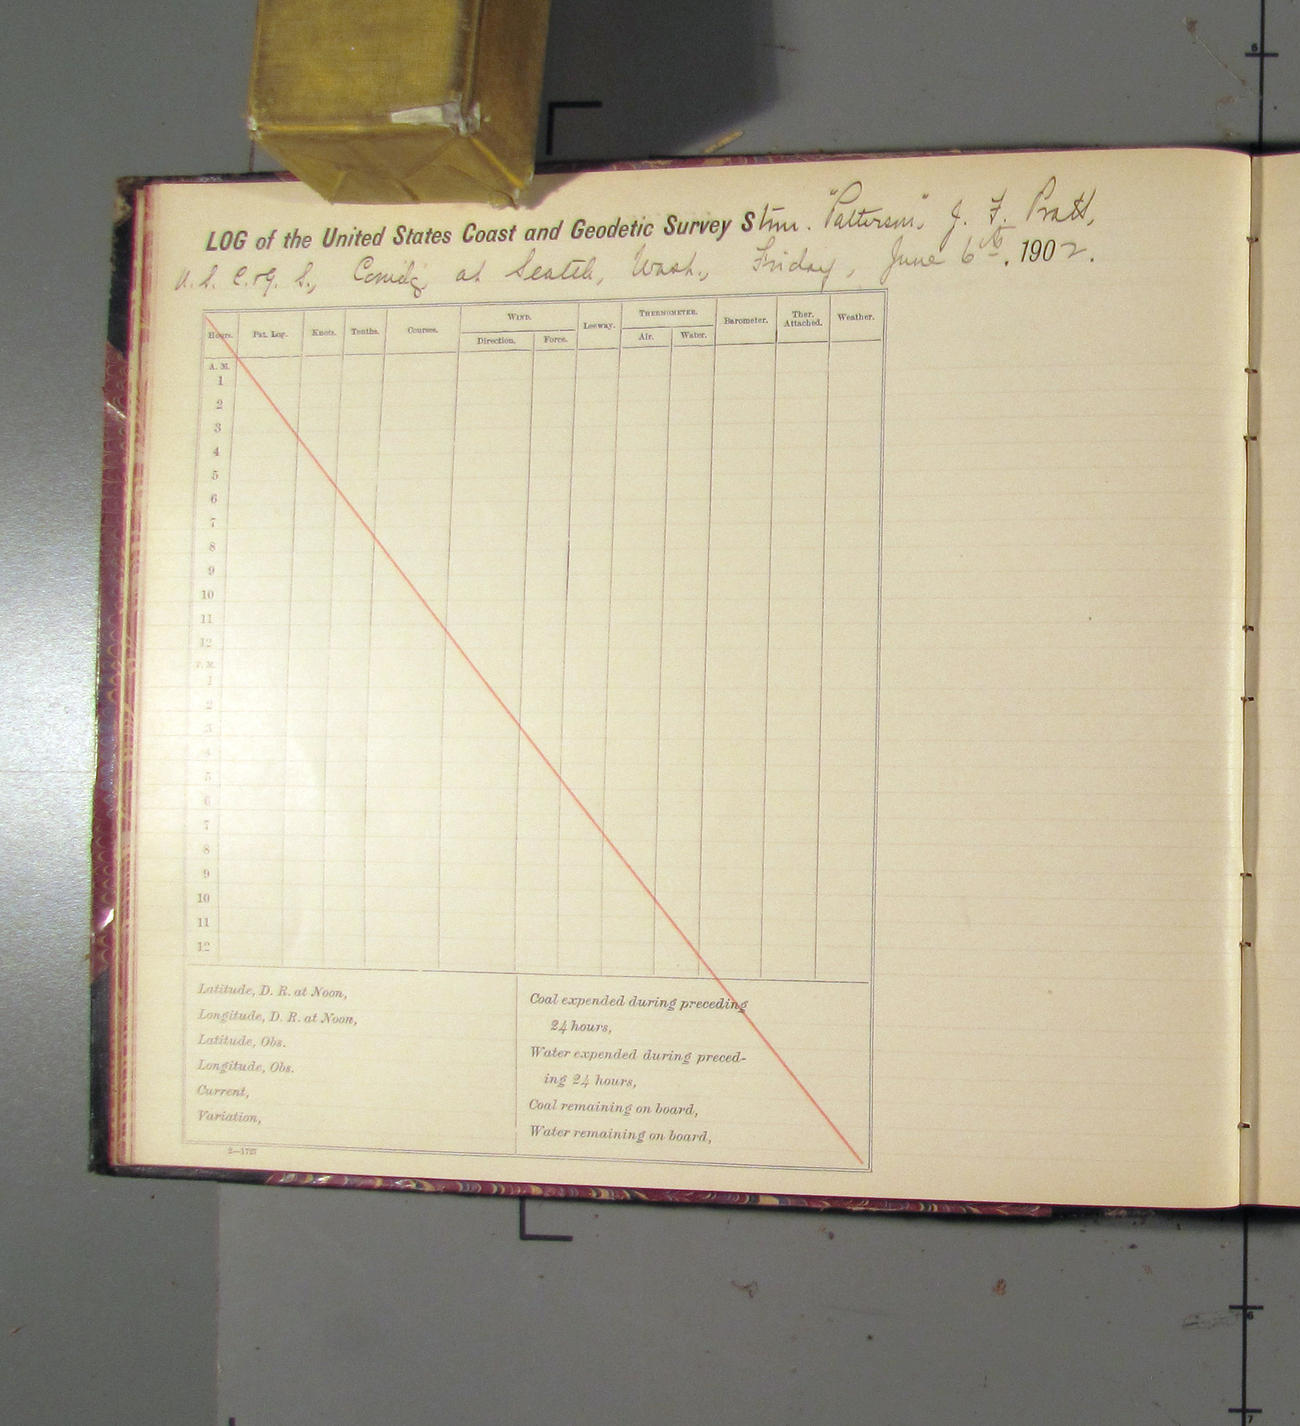 LOG of the United States Coast and Geodetic Survey Stmr. "Patterson", J. F. Pratt,
U. S. C. & G. S., Comd'g, at Seattle, Wash., Friday, June 6th, 1902.
Hours. Pat. Log. Knots. Tenths. Courses. WIND. Leeway. THERMOMETER. Barometer. Ther. Attached. Weather.
Direction. Force. Air. Water.
A. M.
1
2
3
4
5
6
7
8
9
10
11
12
P. M.
1
2
3
4
5
6
7
8
9
10
11
12
Latitude, D. R. at Noon,
Longitude, D. R. at Noon,
Latitude, Obs.
Longitude, Obs.
Current,
Variation,
Coal expended during preceding
24 hours,
Water expended during preced-
ing 24 hours,
Coal remaining on board,
Water remaining on board,
2—1727
5
6
7